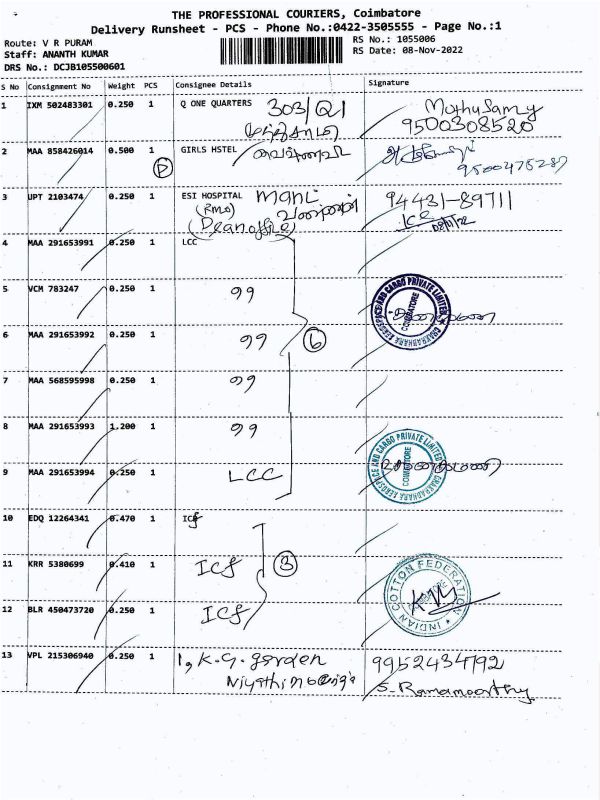 THE PROFESSIONAL COURIERS, Coimbatore
Delivery Runsheet - PCS - Phone No.:0422-3505555 - Page No.:1
Route: V R PURAM
Staff: ANANTH KUMAR
DRS No.: DCJB105500601
RS No.: 1055006
RS Date: 08-Nov-2022
S No Consignment No Weight PCS Consignee Details Signature
1 IXM 502483301 0.250 1 Q ONE QUARTERS 303/Q1 Muthusamy
9500308520
2 MAA 858426014 0.500 1 GIRLS HSTEL
D 9500475287
3 UPT 2103474 0.250 1 ESI HOSPITAL Mani 94431-89711
(RMO)
(Dean office)
4 MAA 291653991 0.250 1 LCC
5 VCM 783247 0.250 1 99
CHAKRADHARA AEROSPACE AND CARGO PRIVATE LIMITED
COIMBATORE
6 MAA 291653992 0.250 1 99 6
7 MAA 568595998 0.250 1 99
8 MAA 291653993 1.200 1 99
9 MAA 291653994 0.250 1 LCC
CHAKRADHARA AEROSPACE AND CARGO PRIVATE LIMITED
COIMBATORE
10 EDQ 12264341 0.470 1 ICf
11 KRR 5380699 0.410 1 ICf 3
INDIAN COTTON FEDERATION
12 BLR 450473720 0.250 1 ICf
13 VPL 215306940 0.250 1 1, K.G. garden 9952434792
S. Ramamoorthy